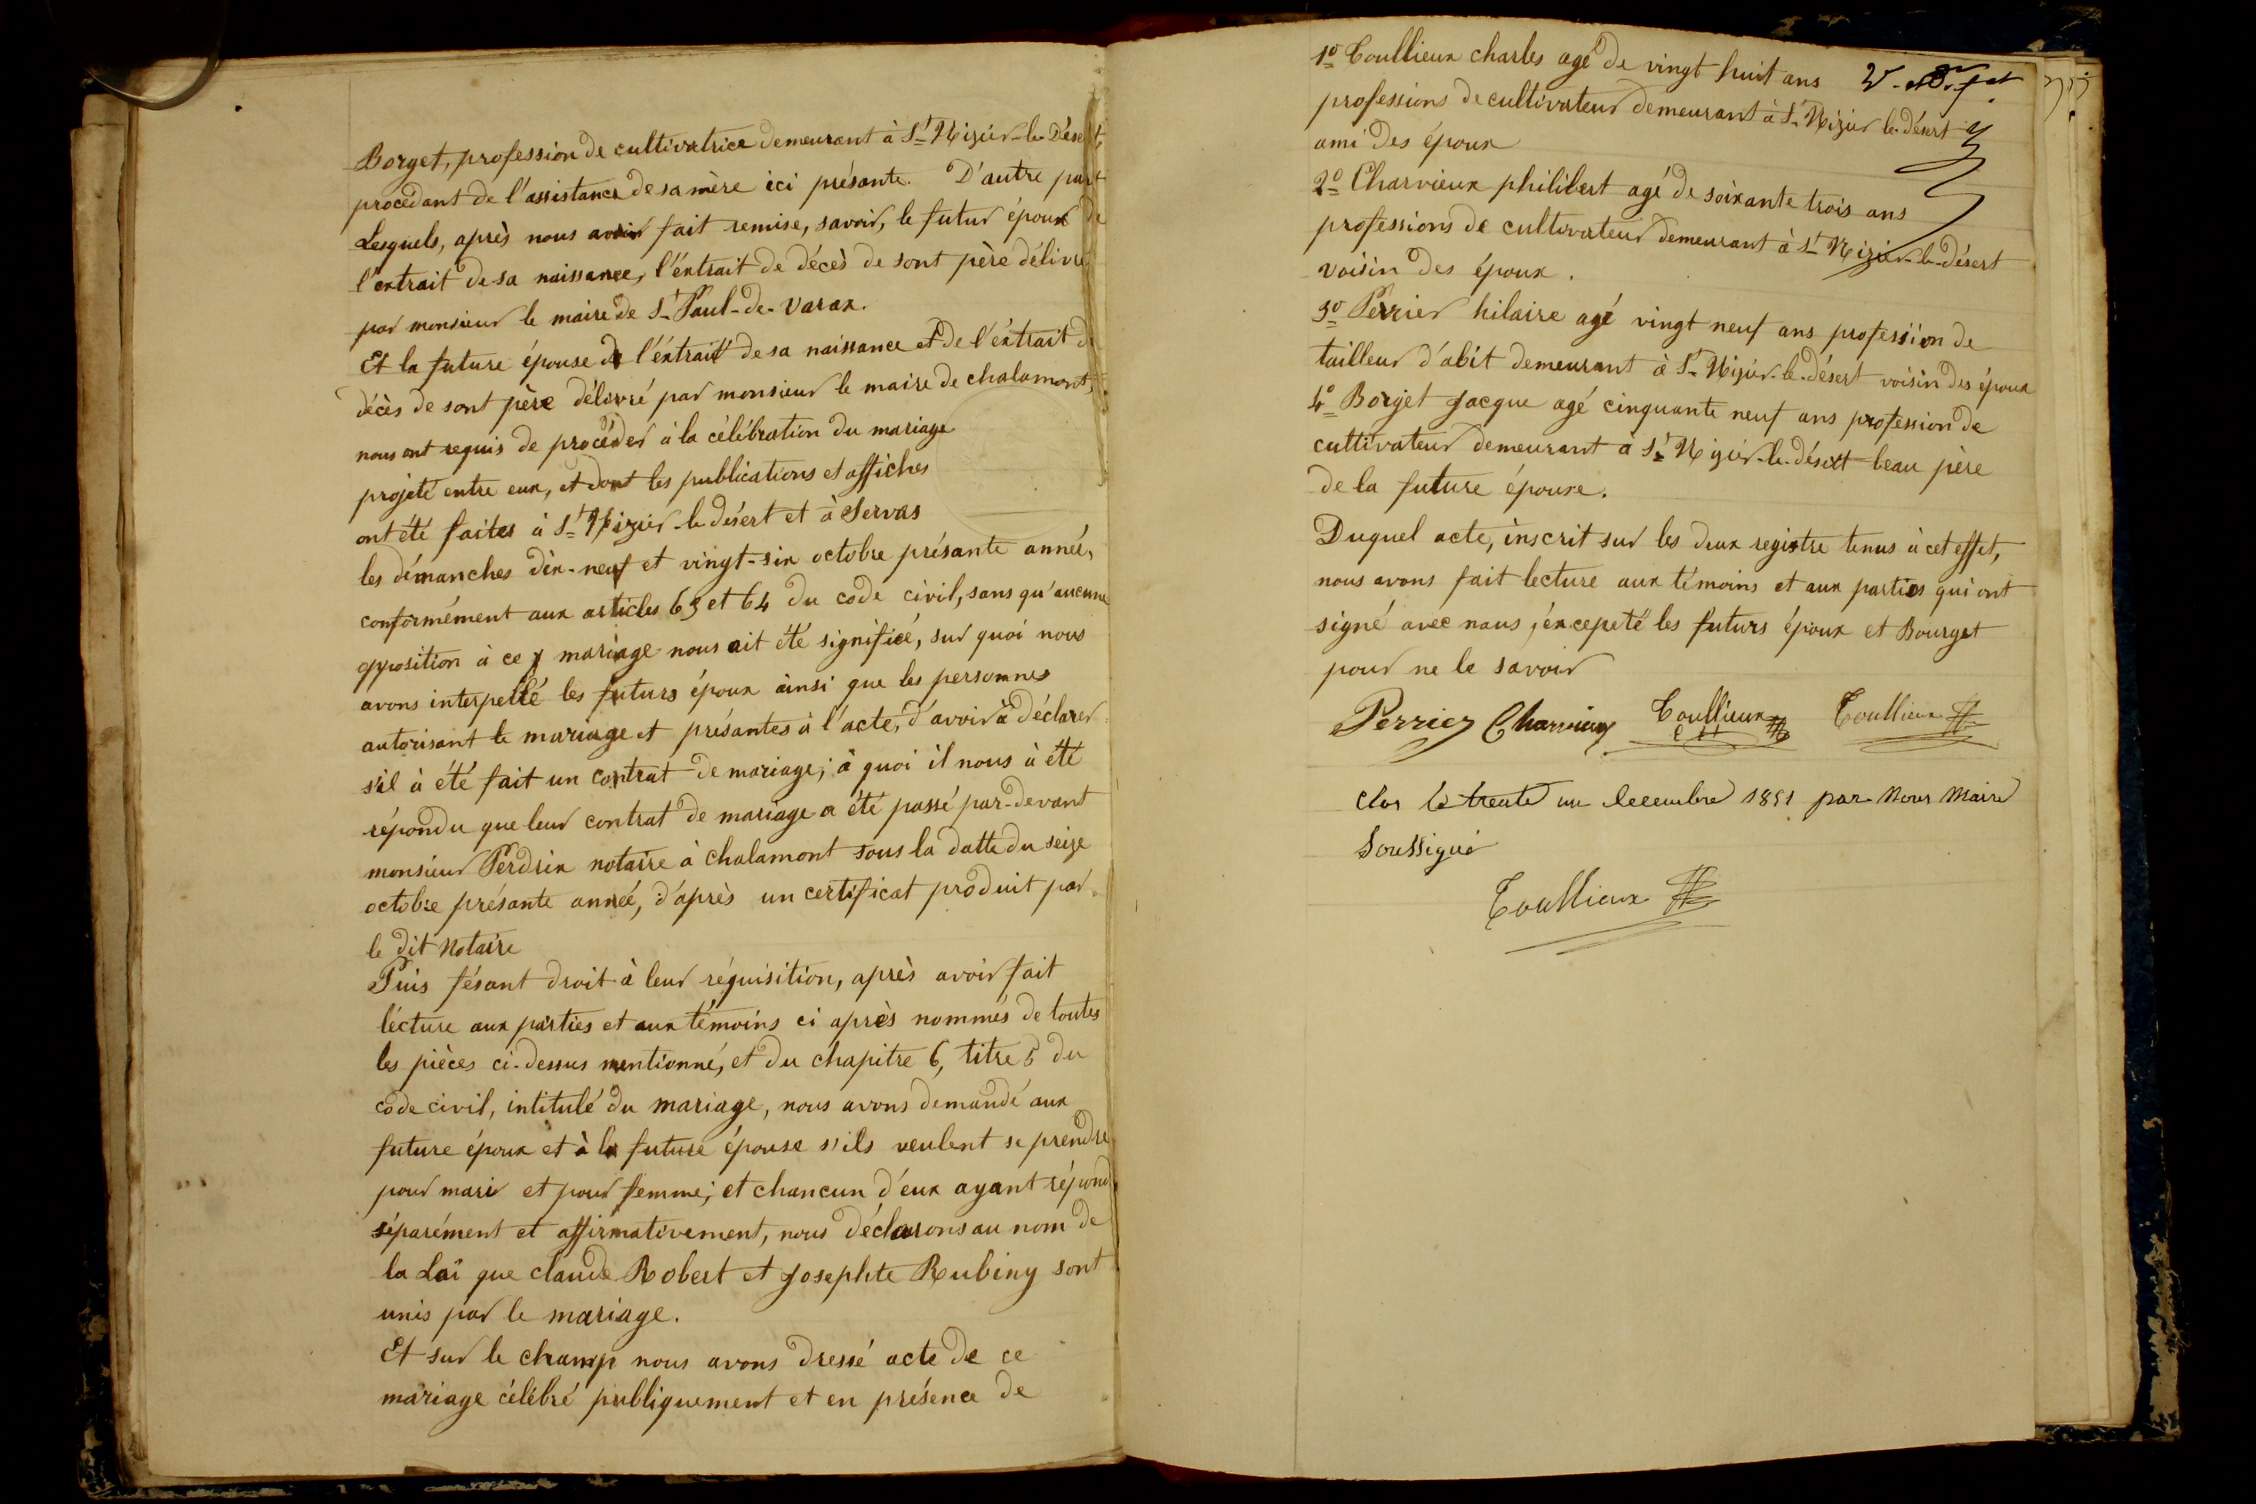 Borget, profession de cultivatrice demeurant à St Nizier-le-Désert
procédant de l'assistance de sa mère ici présante. D'autre part
Lesquels, après nous avoir fait remise, savoir, le futur époux de
l'extrait de sa naissance, l'éxtrait de décès de sont père délivré
par monsieur le maire de St Paul-de-Varax.
Et la future épouse de l'éxtrait de sa naissance et de l'éxtrait de
décès de sont père délivré par monsieur le maire de chalamont,
nous ont requis de procéder à la célébration du mariage
projeté entre eux, et dont les publications et affiches
ont été faites à St Nizier-le désert et à Servas
les démanches dix-neuf et vingt-six octobre présante année,
conformément aux articles 63 et 64 du code civil, sans qu'aucune
opposition à ce mariage nous ait été signifieé, sur quoi nous
avons interpellé les futurs époux ainsi que les personnes
autorisant le mariage et présantes à l'acte, d'avoir à déclarer
s'il à été fait un contrat de mariage; à quoi il nous à été
répondu que leur contrat de mariage a été passé par-devant
monsieur Perdrix notaire à chalamont sous la datte du seize
octobre présante année, d'après un certificat produit par
le dit Notaire
Puis fésant droit à leur réquisition, après avoir fait
lécture aux parties et aux témoins ci après nommés de toutes
les pièces ci-dessus mentionné, et du chapitre 6, titre 5 du
code civil, intitulé du mariage, nous avons demandé aux
future époux et à la future épouse s'ils veulent se prendre
pour mari et pour femme; et chancun d'eux ayant répond
séparément et affirmativement, nous déclarons au nom de
la Loi que claude Robert et Josephte Rubiny sont
unis par le mariage.
Et sur le champ nous avons dressé acte de ce
mariage célébré publiquement et en présence de
1o Toullieux charles agé de vingt huit ans
professions de cultivateur demeurant à St Nizier le-désert
ami des époux
2o Charvieux philibert agé de soixante trois ans
professions de cultivateur demeurant à St Nizier-le-désert
voisin des époux.
3o Perrier hilaire agé vingt neuf ans profession de
tailleur d'abit demeurant à St Nizier-le-désert voisin des époux
4o Borget Jacque agé cinquante neuf ans profession de
cultivateur demeurant à St Nizier-le-désert beau père
de la future épouse.
Duquel acte, inscrit sur les deux registre tenus à cet effet,
nous avons fait lecture aux témoins et aux parties qui ont
signé avec nous, éxcepeté les futurs époux et Bourget
pour ne le savoir
Perrier Charvieux Toullieux Toullieux
Clos le trente un decembre 1851 par Nous Maire
Soussigné
Toullieux